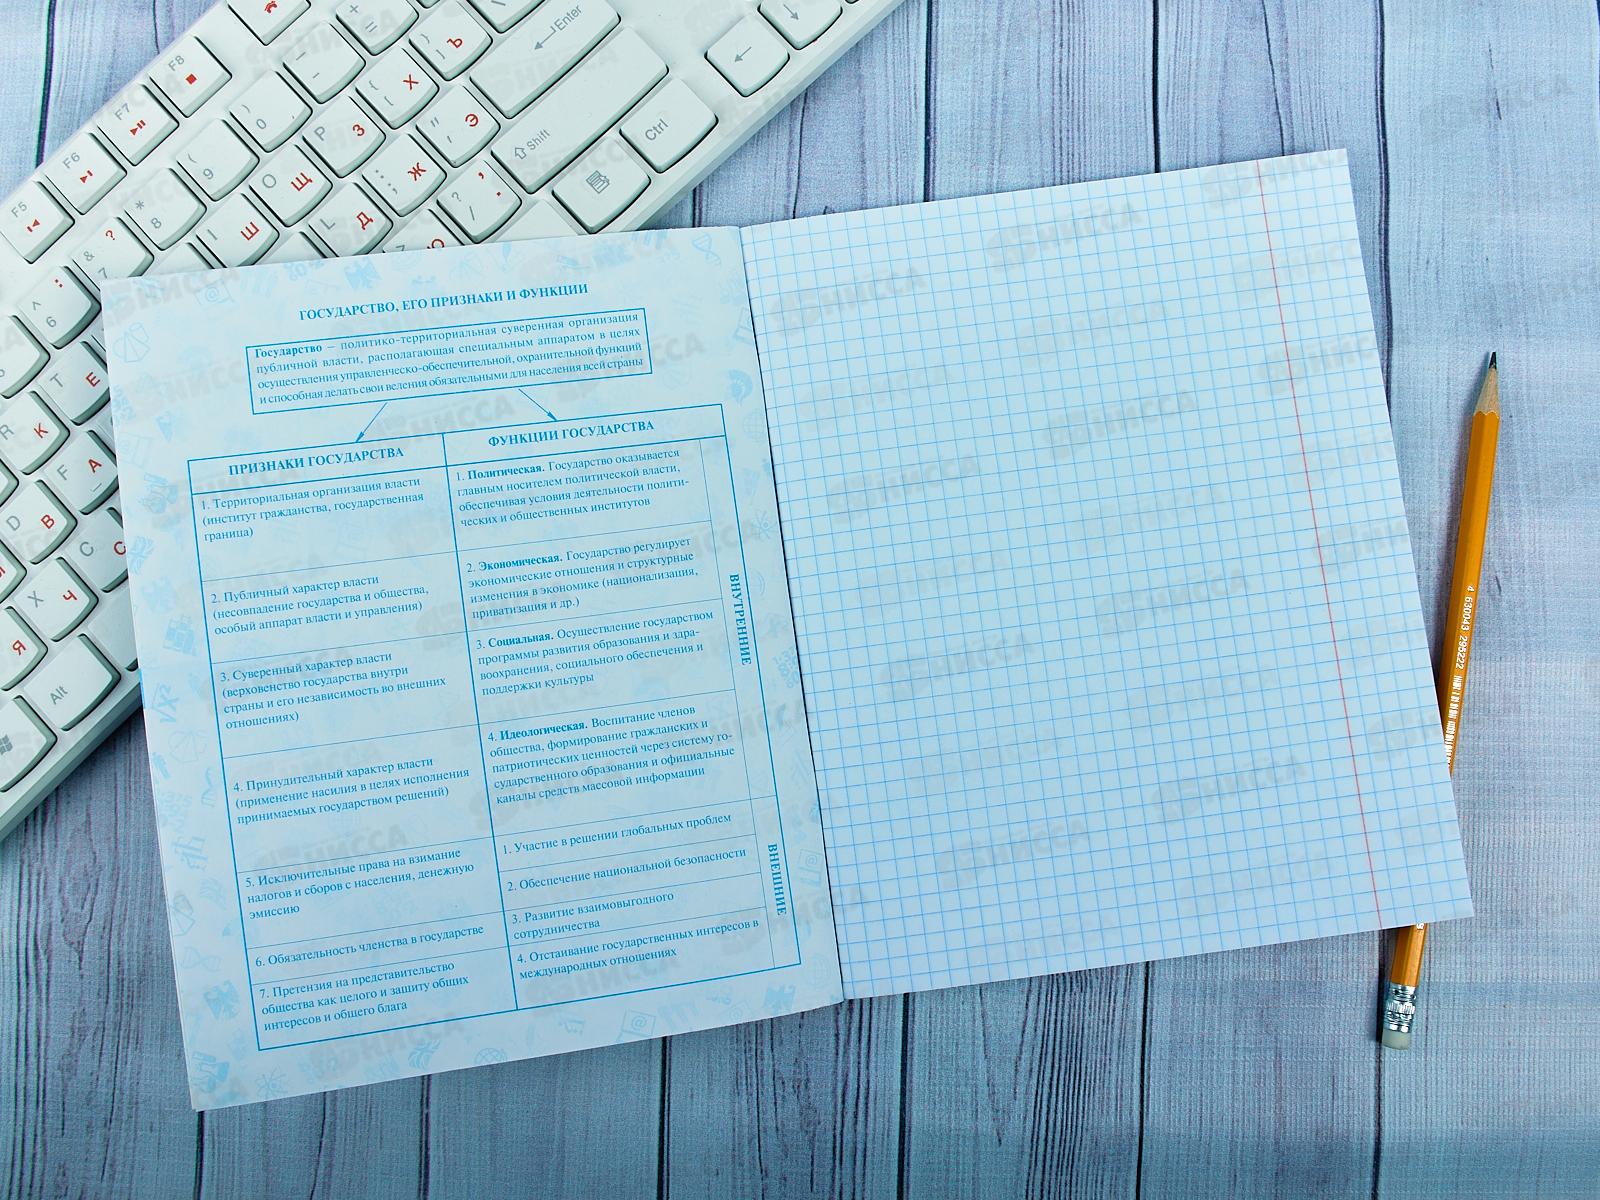 ГОСУДАРСТВО, ЕГО ПРИЗНАКИ И ФУНКЦИИ
Государство – политико-территориальная суверенная организация
публичной власти, располагающая специальным аппаратом в целях
осуществления управленческо-обеспечительной, охранительной функций
и способная делать свои веления обязательными для населения всей страны
ПРИЗНАКИ ГОСУДАРСТВА
1. Территориальная организация власти
(институт гражданства, государственная
граница)
2. Публичный характер власти
(несовпадение государства и общества,
особый аппарат власти и управления)
3. Суверенный характер власти
(верховенство государства внутри
страны и его независимость во внешних
отношениях)
4. Принудительный характер власти
(применение насилия в целях исполнения
принимаемых государством решений)
5. Исключительные права на взимание
налогов и сборов с населения, денежную
эмиссию
6. Обязательность членства в государстве
7. Претензия на представительство
общества как целого и защиту общих
интересов и общего блага
ФУНКЦИИ ГОСУДАРСТВА
1. Политическая. Государство оказывается
главным носителем политической власти,
обеспечивая условия деятельности полити-
ческих и общественных институтов
2. Экономическая. Государство регулирует
экономические отношения и структурные
изменения в экономике (национализация,
приватизация и др.)
3. Социальная. Осуществление государством
программы развития образования и здра-
воохранения, социального обеспечения и
поддержки культуры
4. Идеологическая. Воспитание членов
общества, формирование гражданских и
патриотических ценностей через систему го-
сударственного образования и официальные
каналы средств массовой информации
ВНУТРЕННИЕ
1. Участие в решении глобальных проблем
2. Обеспечение национальной безопасности
3. Развитие взаимовыгодного
сотрудничества
4. Отстаивание государственных интересов в
международных отношениях
ВНЕШНИЕ
F5
F6
F7
F8
Enter
Shift
Ctrl
Alt
4 630043 295222
НИССА